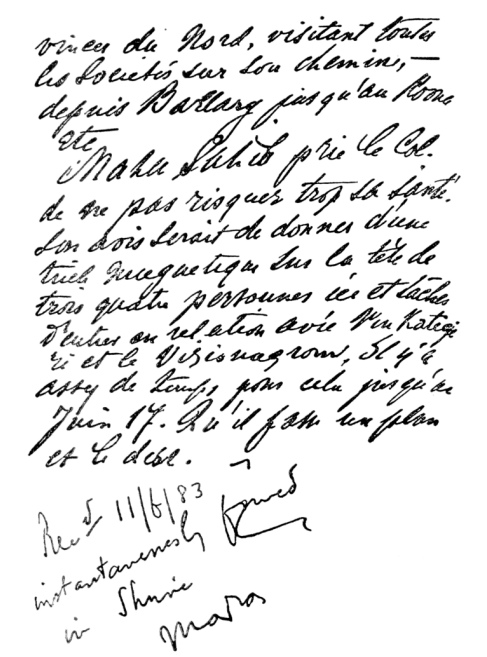 vinces du Nord, visitant toutes
les Societés sur son chemin, —
depuis Barlary jusqu'au Poona
etc
Maha Sahib prie le Col.
de ne pas risquer trop sa santé.
Son avis serait de donner d'une
trick magnetique sur la tête de
trois quatre personnes ici et tacher
d'entrer en relation avec Venkategi
ri et le Vizionagrom, Il y a
assez de temps pour cela jusqu'au
Juin 17. Qu'il fasse un plan
et le dise.
Recd 11/6/83
instantaneously
in Shrine
Madras